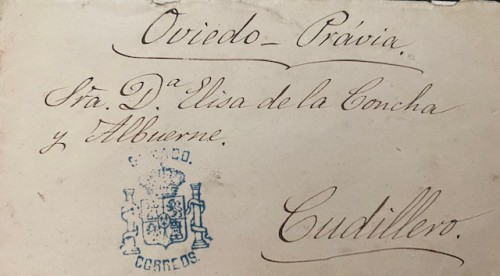 Oviedo - Právia.
Sra. D.ª Elisa de la Concha
y Albuerne.
SENADO.
CORREOS.
Cudillero.